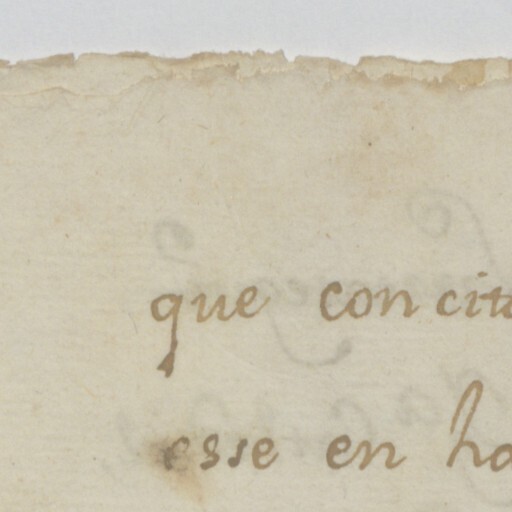 que concit
esse en ha